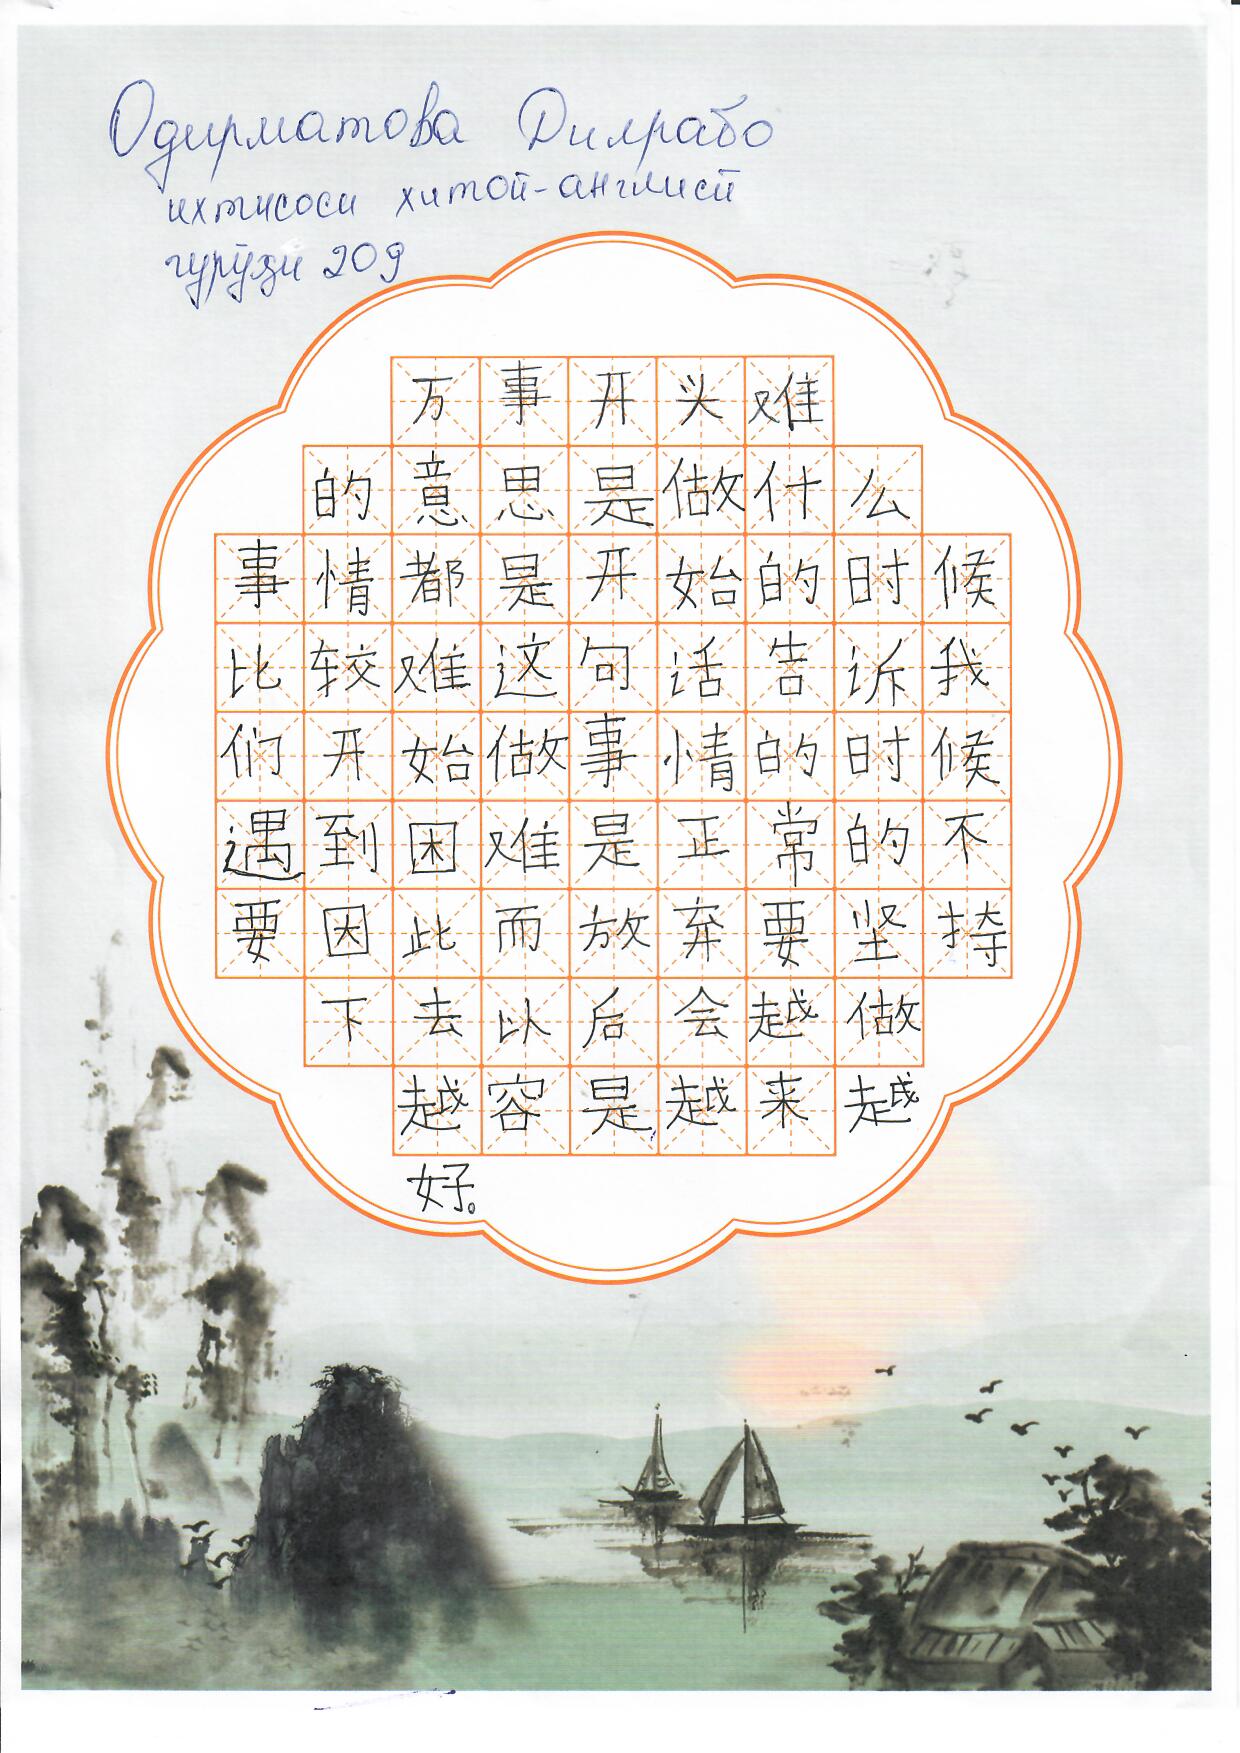 Одирматова Дилрабо
ихтисоси хитой-англисӣ
гурӯҳи 209
万事开头难
的意思是做什么
事情都是开始的时候
比较难这句话告诉我
们开始做事情的时候
遇到困难是正常的不
要因此而放弃要坚持
下去以后会越做
越容是越来越
好。